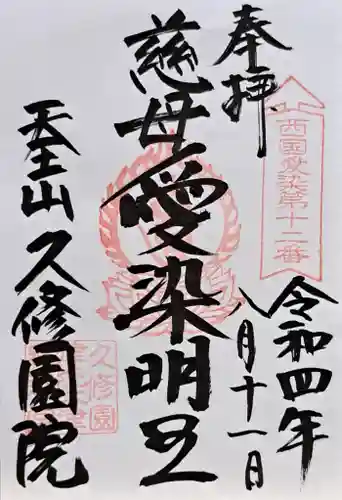 奉拝
西国愛染第十二番
令和四年
八月十一日
慈母愛染明王
天王山久修園院
久修園